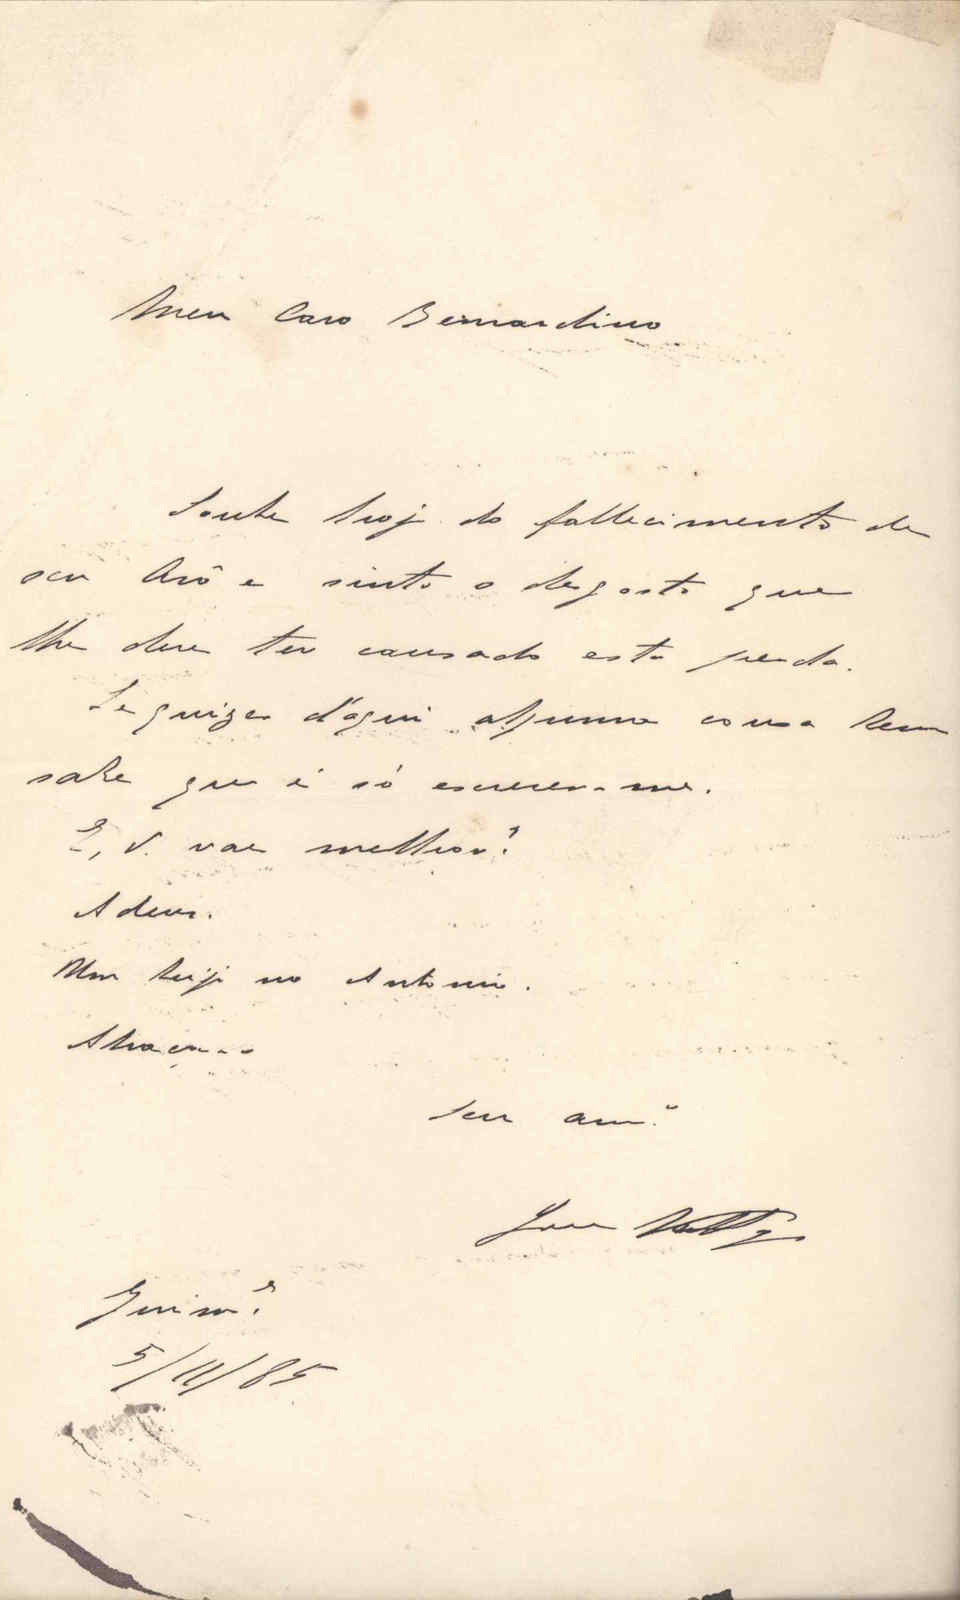 Meu Caro Bernardino
Soube hoje do fallecimento de
seu Avô e sinto o desgosto que
lhe deve ter causado esta perda.
Se quizer d'aqui alguma cousa bem
sabe que é só escrever-me.
E, V. vae melhor?
Adeus.
Um beijo no Antonio.
Abraça-o
Seu am.º
Guim.es
5/11/85